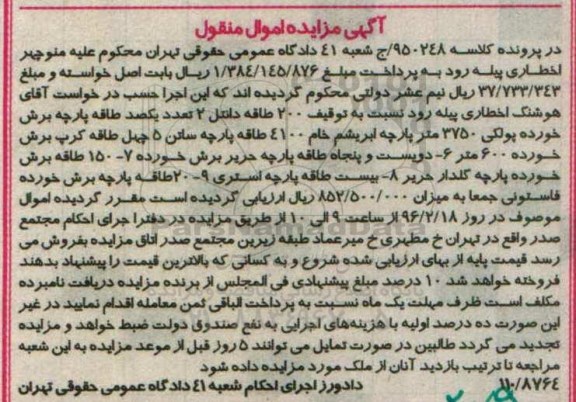 آگهی مزایده اموال منقول
در پرونده کلاسه ۹۵۰۲۴۸/ج شعبه ۴۱ دادگاه عمومی حقوقی تهران محکوم علیه منوچهر
اخطاری پیله رود به پرداخت مبلغ ۱/۳۸۴/۱۴۵/۸۷۶ ریال بابت اصل خواسته و مبلغ
۳۷/۷۳۳/۳۴۳ ریال نیم عشر دولتی محکوم گردیده اند که این اجرا حسب در خواست آقای
هوشنگ اخطاری پیله رود نسبت به توقیف ۲۰۰ طاقه دانتل ۲ تعدد یکصد طاقه پارچه برش
خورده پولکی ۳۷۵۰ متر پارچه ابریشم خام ۴۱۰۰ طاقه پارچه ساتن ۵ چهل طاقه کرپ برش
خورده ۶۰۰ متر ۶- دویست و پنجاه طاقه پارچه حریر برش خورده ۷- ۱۵۰ طاقه برش
خورده پارچه گلدار حریر ۸- بیست طاقه پارچه استری ۹-۲۰طاقه پارچه برش خورده
فاستونی جمعا به میزان ۸۵۲/۵۰۰/۰۰۰ ریال ارزیابی گردیده است مقرر گردیده اموال
موصوف در روز ۹۶/۲/۱۸ از ساعت ۹ الی ۱۰ از طریق مزایده در دفترا جرای احکام مجتمع
صدر واقع در تهران خ مطهری خ میرعماد طبقه زیرین مجتمع صدر اتاق مزایده بفروش می
رسد قیمت پایه از بهای ارزیابی شده شروع و به کسانی که بالاترین قیمت را پیشنهاد بدهند
فروخته خواهد شد ۱۰ درصد مبلغ پیشنهادی فی المجلس از برنده مزایده دریافت نامبرده
مکلف است ظرف مهلت یک ماه نسبت به پرداخت الباقی ثمن معامله اقدام نمایید در غیر
این صورت ده درصد اولیه با هزینه های اجرایی به نفع صندوق دولت ضبط خواهد و مزایده
تجدید می گردد طالبین در صورت تمایل می توانند ۵ روز قبل از موعد مزایده به این شعبه
مراجعه تا ترتیب بازدید آنان از ملک مورد مزایده داده شود
۱۱۰/۸۷۶۴ دادورز اجرای احکام شعبه ۴۱ دادگاه عمومی حقوقی تهران